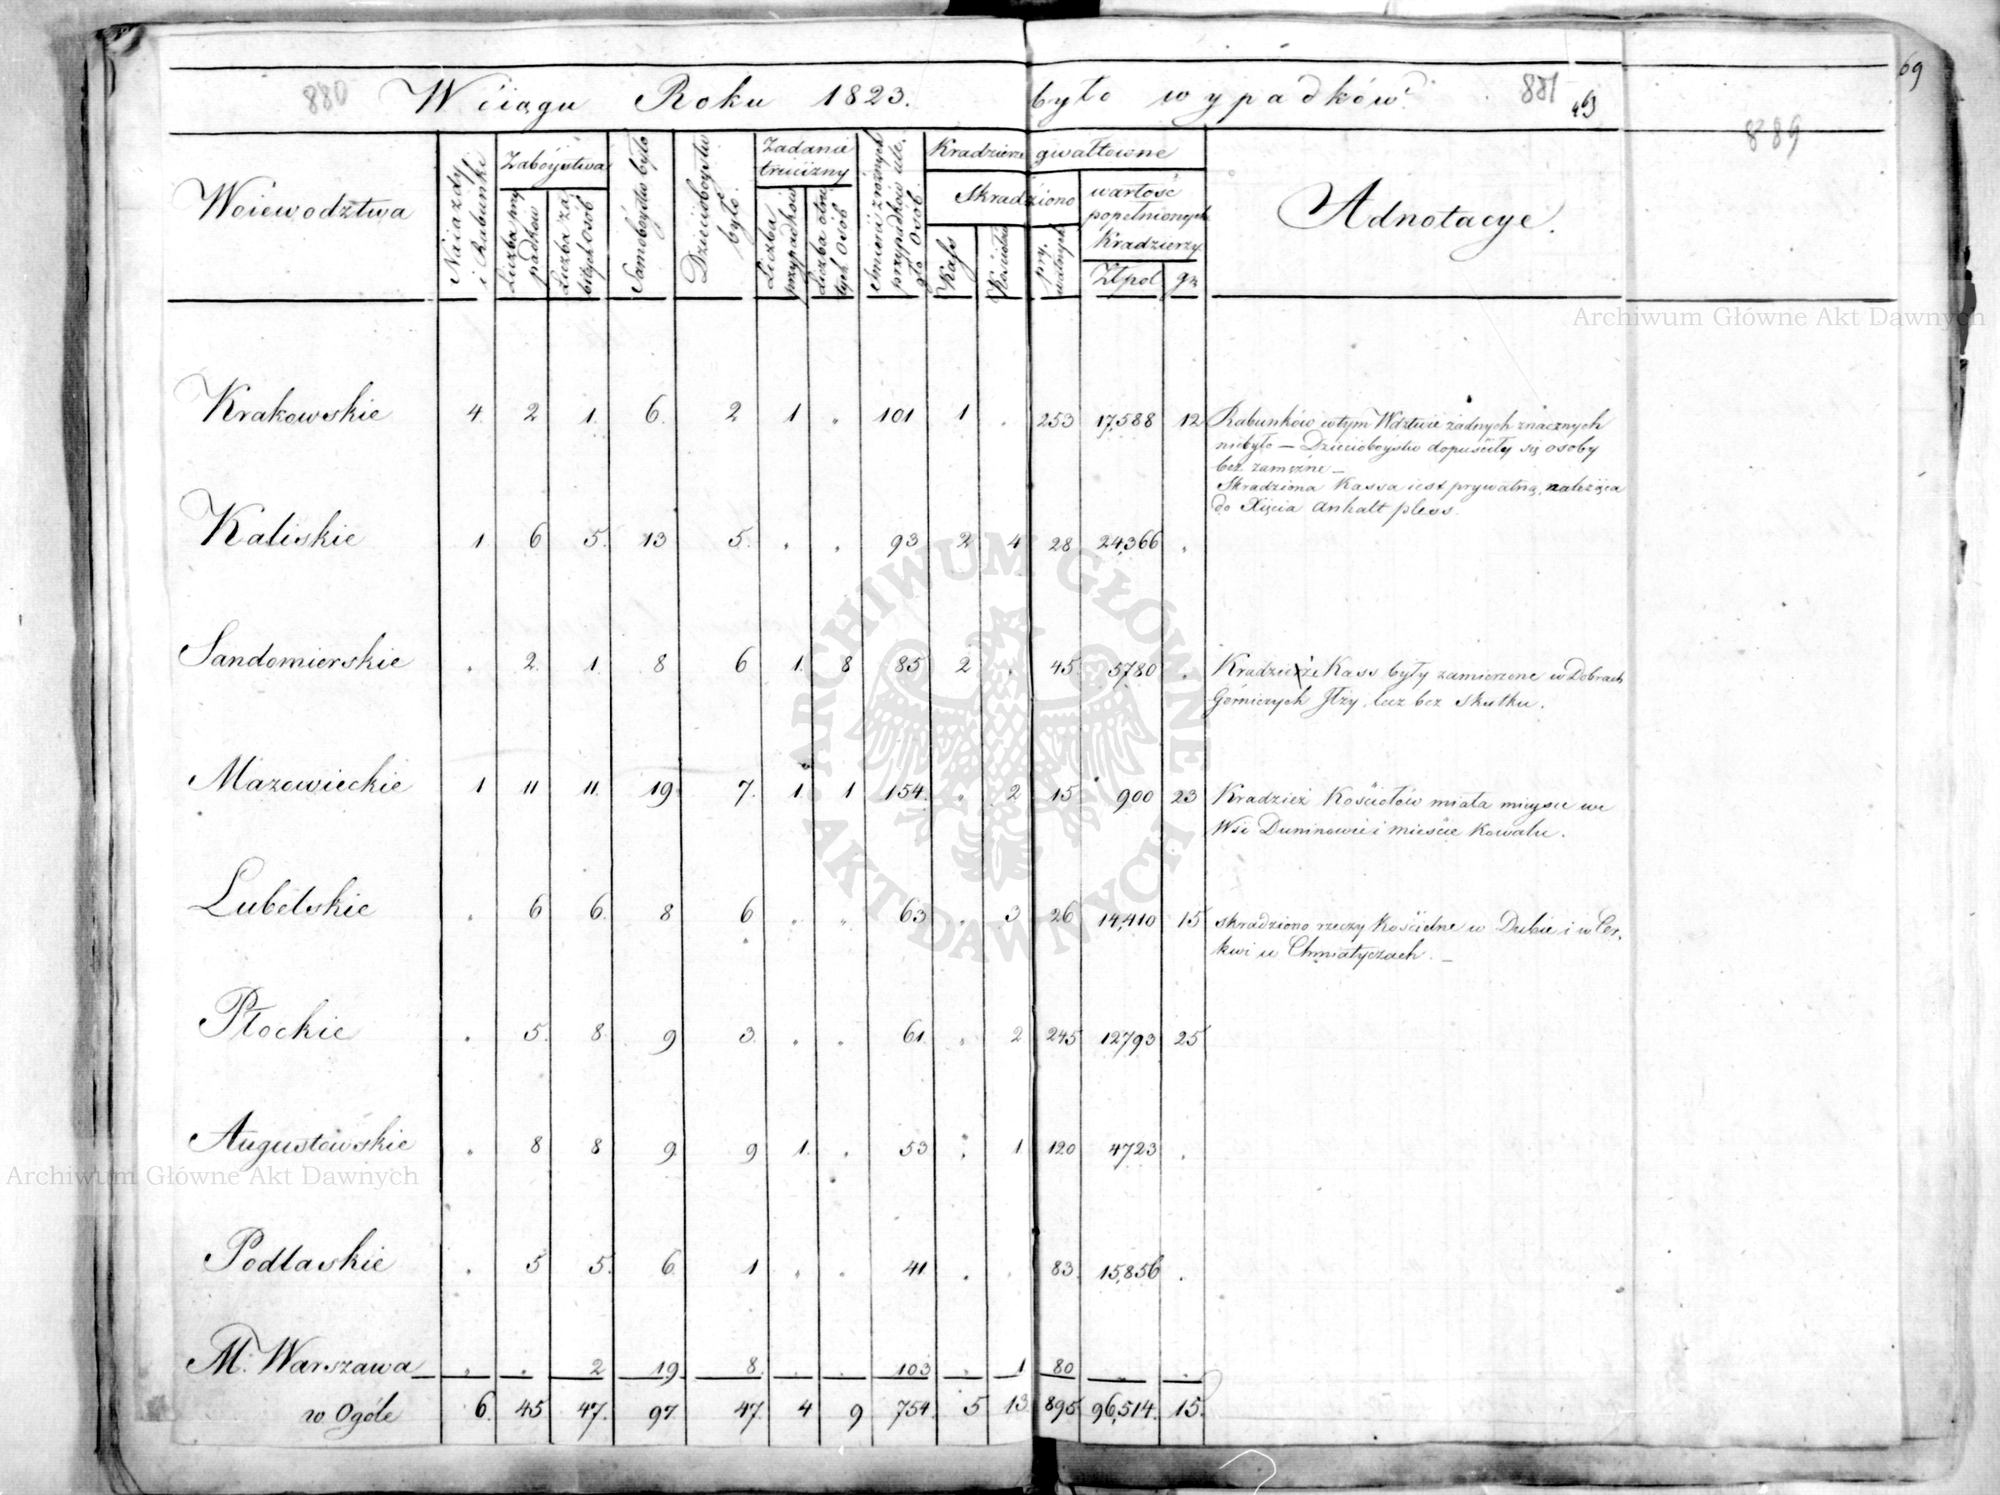 880 W ciągu Roku 1823. było wypadków. 881 463
69
889
Woiewodztwa
Naiazdy i Rabunki
Zaboystwa
Liczba przypadków
Liczba zabitych Osób
Samobóystw było
Dziecioboystw było.
Zadanie trucizny
Liczba przypadków
Liczba otrutych Osób
Smierci z róźnych przypadków uległo Osób.
Kradzieże gwałtowne
Skradziono
Kass
Kościołów
prywatnych
wartość popełnionych Kradzieży
Złpol gr
Adnotacye.
Krakowskie 4. 2 1. 6. 2 1 . 101 1 . 253 17,588 12
Rabunków w tym Wdztwie żadnych znacznych
niebyło — Dziecioboystw dopuściły się osoby
bez zamężne —
Skradziona Kassa iest prywatną, należąca
do Xięcia Anhalt pless.
Kaliskie 1. 6 5. 13 5. . . 93 2 4 28 24,366 .
Sandomierskie . 2. 1. 8 6 1. 8 85 2 . 45 5780 .
Kradzieże Kass były zamierzone w Dobrach
Górniczych Iłży, lecz bez skutku.
Mazowieckie 1 11 11. 19 7. 1. 1 154. . 2 15 900 23
Kradzież Kościołów miała mieysce we
Wsi Duninowie i mieście Kowalu.
Lubelskie . 6 6. 8 6 . . 63 . 3 26 14,410 15
skradziono rzeczy Kościelne w Dubie i w Cer-
kwi w Chmiatyczach. —
Płockie . 5. 8. 9 3. . . 61. . 2 245 12793 25
Augustowskie . 8 8 9 9 1. . 53 . 1 120 4723 .
Podlaskie . 5 5. 6 1 . . 41 . . 83. 15,856 .
M. Warszawa . . 2 19 8. . . 103 . 1 80 . .
w Ogóle 6. 45 47. 97. 47. 4 9 754. 5 13 895 96,514. 15.
Archiwum Główne Akt Dawnych
Archiwum Główne Akt Dawnych
ARCHIWUM GŁÓWNE • AKT DAWNYCH •